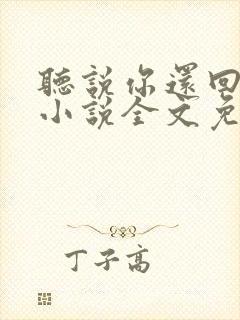 聽說你還回
小說全文免
丁子高